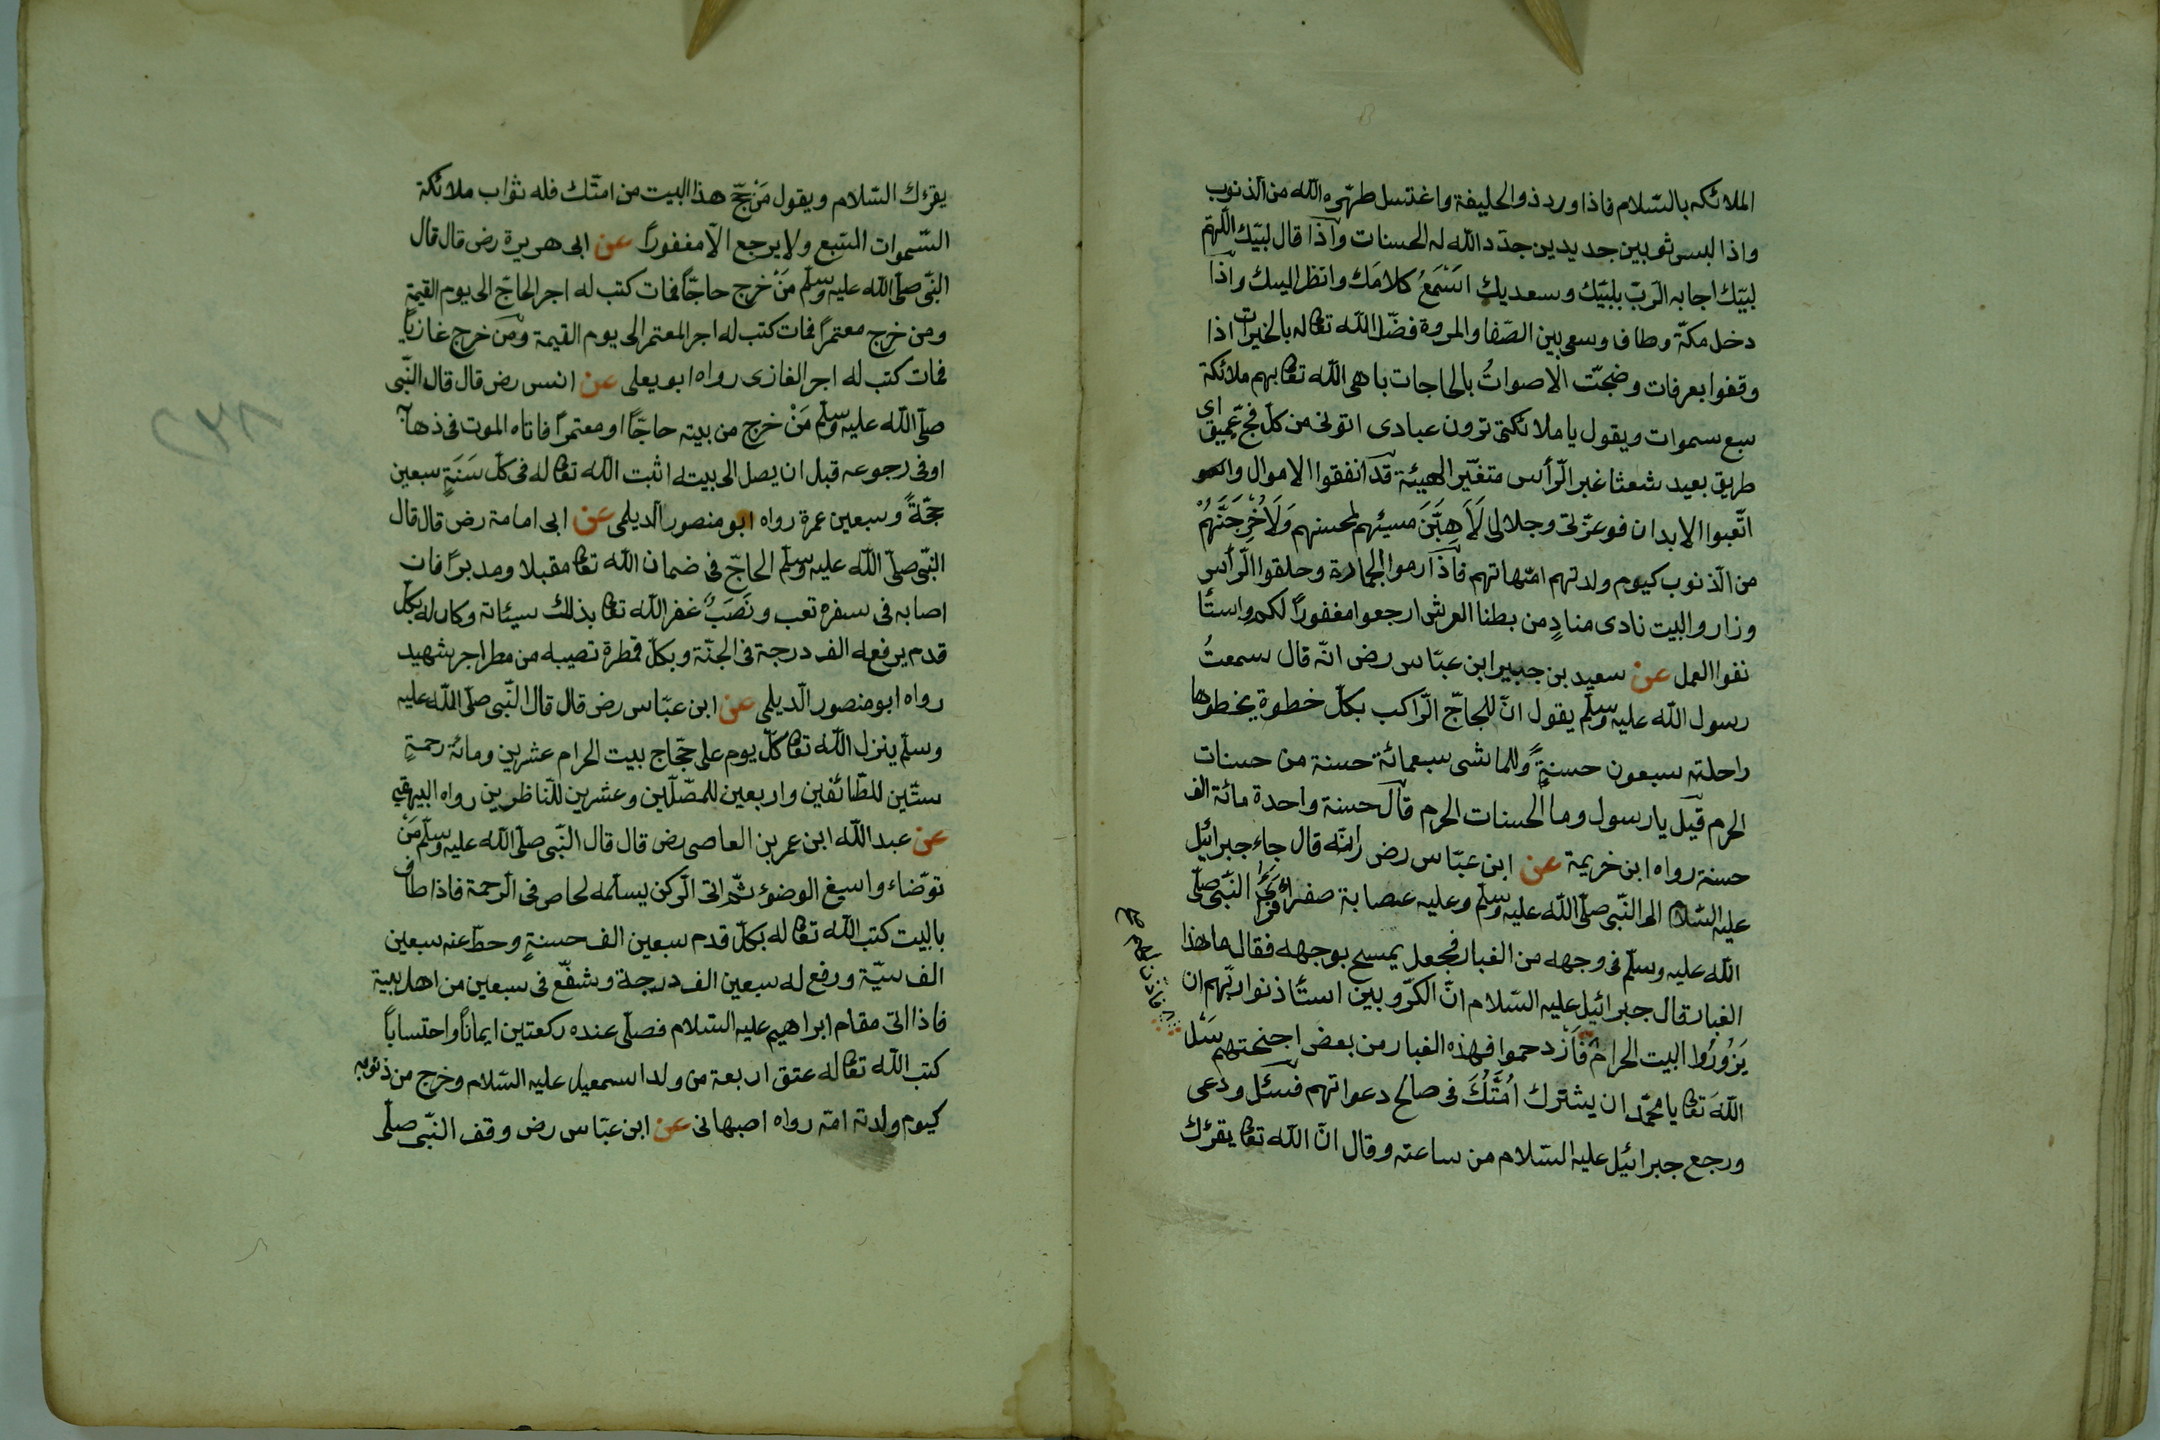 الملائكه بالسّلام فاذا ورد ذو الحليفة واغتسل طهّره الله من الذنوب
واذا لبس ثوبين جديدين جدّد الله له الحسنات واذا قال لبيّك اللّهمّ
لبيّك اجابه الرّبّ بلبيّك وسعديك اسْمَعُ كلامَك وانظر اليك واذا
دخل مكّة وطاف وسعى بين الصّفا والمروة فضّل الله تعا له بالخيرات اذا
وقفوا بعرفات وضجّت الاصواتُ بالحاجات باهى الله تعا بهم ملائكة
سبع سموات ويقول يا ملائكتى ترون عبادى اتونى من كلّ فجّ عميق اى
طريق بعيد شعثا غبر الرّأس متغيّر الهيئة قد انفقوا الاموال و
اتّعبوا الابدان فوعزّتى وجلالى لَاَهِبَّنَ مسيئهم لمحسنهم وَلَاُخْرِجَنَّهُمْ
من الذنوب كيوم ولدتهم امّهاتهم فاذا رموا الجمارة وحلقوا الرّأس
وزاروا البيت نادى منادٍ من بطنا العرش ارجعوا مغفورًا لكم واستأ
نفوا العمل عن سعيد بن جبير ابن عبّاس رض انّه قال سمعتُ
رسول الله عليه وسلّم يقول انّ للحاجّ الرّاكب بكلّ خطوة يخطوها
راحلته سبعون حسنةً وللماشى سبعمائة حسنة من حسنات
الحرم قيل يا رسول وما الحسنات الحرم قال حسنة واحدة مائة الف
حسنة رواه ابن خريمة عن ابن عبّاس رض انّه قال جاء جبرائيل
عليه السّلام الى النّبى صلّى الله عليه وسلّم وعليه عصابة صفراء النّبى صلّى
الله عليه وسلّم فى وجهه من الغبار فجعل يمسح بوجهه فقال ما هذا
الغبار قال جبرائيل عليه السّلام انّ الكرّوبين استأذنوا ربّهم ان
يَزُورُوا البيت الحرام فَاَزْدحموا فهذه الغبار من بعض اجنحتهم سَل
اللهَ تعا يا محمّد ان يشترك اُمَّتُكَ فى صالح دعواتهم فسئل ودعى
ورجع جبرائيل عليه السّلام من ساعته وقال انّ الله تعا يقرئك
يقرئك السّلام ويقول مَنْ حجّ هذا البيت من امتّك فله ثواب ملائكة
السّموات السّبع ولا يرجع الّا مغفورًا عن ابى هريرة رض قال قال
النّبى صلّى الله عليه وسلّم مَنْ خرج حاجًّا فمات كتب له اجر الحاجّ الى يوم القيمة
ومن خرج معتمرًا فمات كتب له اجر المعتمر الى يوم القيمة ومن خرج غازيًا
فمات كتب له اجر الغازى رواه ابو يعلى عن انس رض قال قال النّبى
صلّى الله عليه وسلّم مَنْ خرج من بيته حاجّا او معتمرًا فاتاه الموت فى ذهابه
او فى رجوعه قبل ان يصل الى بيته اثبت الله تعا له فى كلّ سَنَةٍ سبعين
حجّةً وسبعين عمرة رواه ابو منصور الديلمى عن ابى امامة رض قال قال
النّبى صلّى الله عليه وسلّم الحاجّ فى ضمان الله تعا مقبلا ومدبرًا فان
اصابه فى سفره تعب ونَصَبٌ غفر الله تعا بذلك سيئاته وكان له بكلّ
قدم يرفعه الف درجة فى الجنّة وبكلّ قطرة تصيبه من مطر اجر شهيد
رواه ابو منصور الدّيلمى عن ابن عبّاس رض قال قال النّبى صلّى الله عليه
وسلّم ينزل الله تعا كلّ يوم على حجّاج بيت الحرام عشرين ومائة رحمةٍ
ستّين للطّائفين واربعين للمصّلّين وعشرين للنّاظرين رواه البيهقى
عن عبد الله ابن عمر بن العاصى رض قال قال النّبى صلّى الله عليه وسلّم مَنْ
توضّاء واسبغ الوضوء ثمّ اتى الرّكن يسلّمه لخاص فى الرّحمة فاذا طاف
بالبيت كتب الله تعا له بكلّ قدم سبعين الف حسنةٍ وحطّ عنه سبعين
الف سيّة ورفع له سبعين الف درجة وشفّع فى سبعين من اهل بيته
فاذا اتى مقام ابراهيم عليه السّلام فصلّى عنده ركعتين ايمانًا واحتسابًا
كتب الله تعا له عتق اربعة من ولد اسمعيل عليه السّلام وخرج من ذنوبه
كيوم ولدته امّه رواه اصبهانى عن ابن عبّاس رض وقف النّبى صلّى